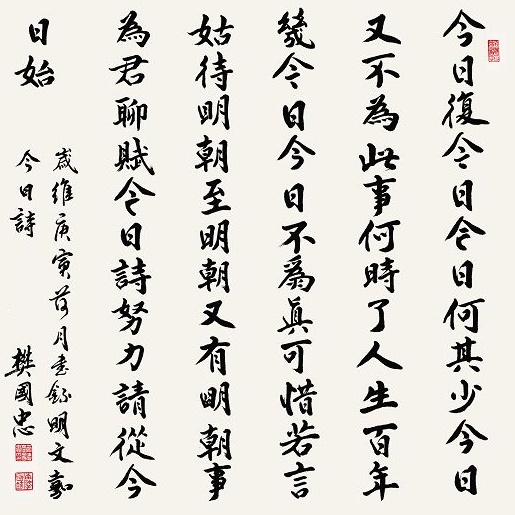 今日復今日今日何其少今日
又不為此事何時了人生百年
幾今日今日不爲眞可惜若言
姑待明朝至明朝又有明朝事
為君聊賦今日詩努力請從今
日始
歲維庚寅荷月書錄明文嘉
今日詩 樊國忠